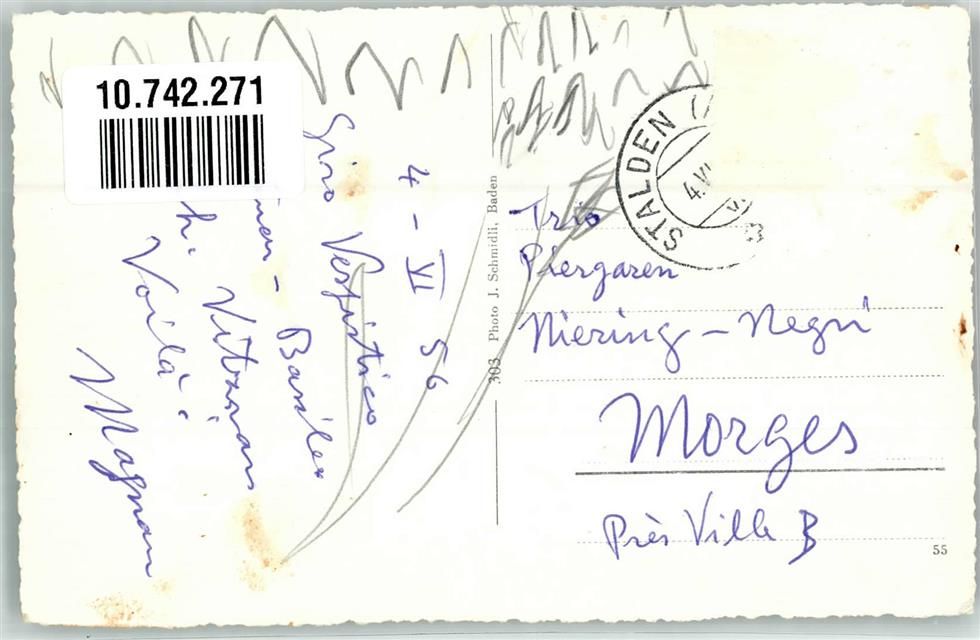 10.742.271
4 - VI 56
Giro Vespistico
- Basilea
Voilà.
Magnan
303 Photo J. Schmidli, Baden
STALDEN
4.VI
Trio
Piergaren
Niering - Negri
Morges
Près Ville B
55